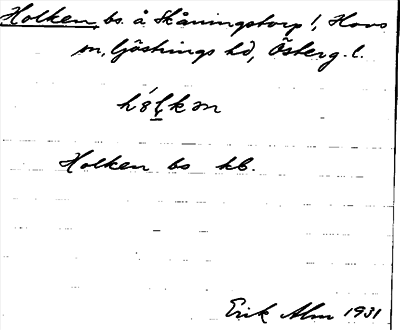 Holken, bs. å Skåningstorp 1, Hovs
sn, Göstrings hd, Österg. l.
hə́l̥kən
Holken bs kb.
Erik Alm 1931